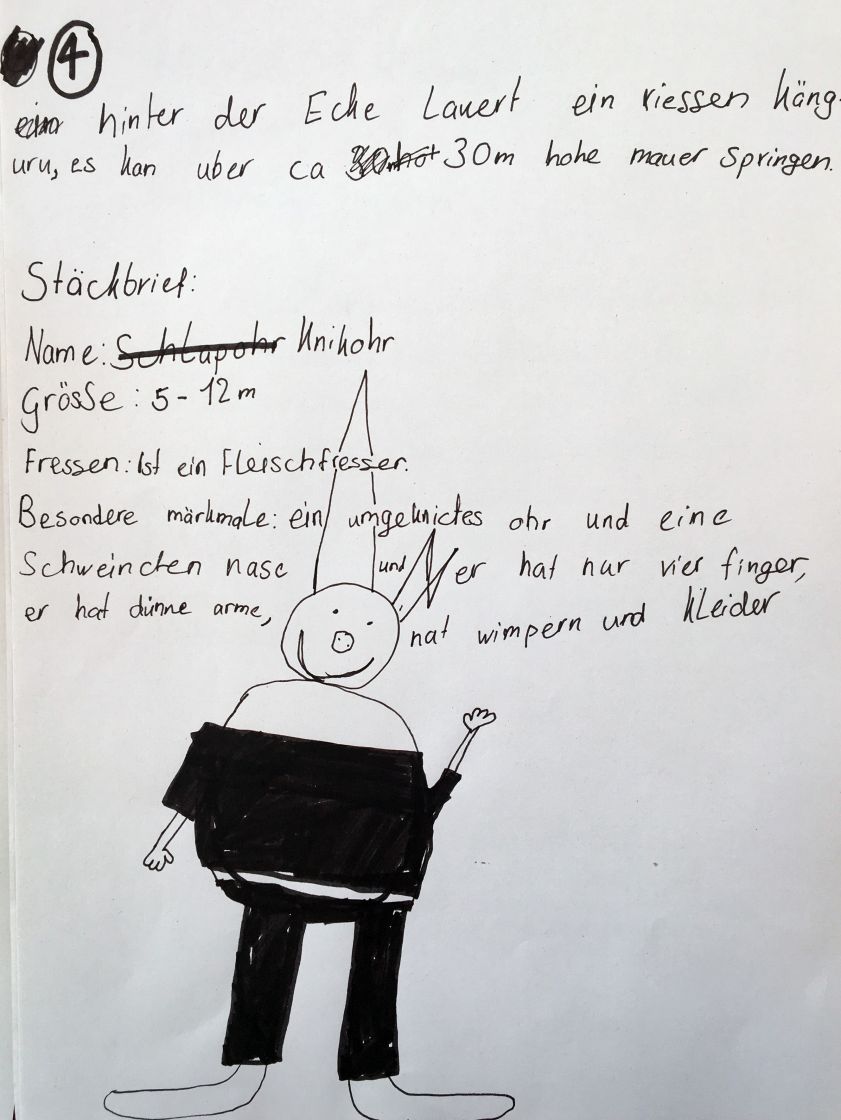 4
hinter der Ecke Lauert ein riessen käng-
uru, es kan uber ca 30m hohe mauer springen.
Stäckbrief:
Name: Schlapohr Knikohr
Grösse: 5-12m
Fressen: Ist ein Fleischfresser.
Besondere märkmale: ein umgeknictes ohr und eine
Schweincten nase und er hat nur vier finger,
er hat dünne arme, hat wimpern und kleider